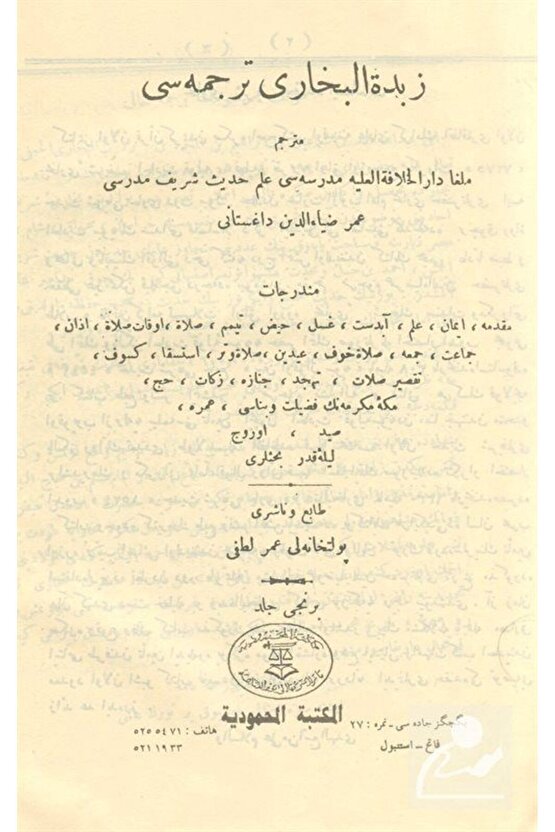 زبدة البخاری ترجمه سی
مترجم
ملغا دار الخلافة العلیه مدرسه سی علم حدیث شریف مدرسی
عمر ضیاءالدین داغستانی
مندرجات
مقدمه ، ایمان ، علم ، آبدست ، غسل ، حیض ، تیمم ، صلاة ، اوقات صلاة ، اذان ،
جماعت ، جمعه ، صلاة خوف ، عیدین ، صلاة وتر ، استسقا ، کسوف ،
تقصیر صلات ، تهجد ، جنازه ، زکات ، حج ،
مکۀ مکرمه نك فضیلت وبناسی ، عمره ،
صید ، اوروج
لیلۀ قدر بحثلری
طابع و ناشری
پولتخانه لی عمر لطفی
برنجی جلد
المکتبة المحمودیة
یگیگز جاده سی - نمره : ۲۷
فاتح - استنبول
هاتف : ٥٢٥٥٤٧١
٥٢١١٩٣٣